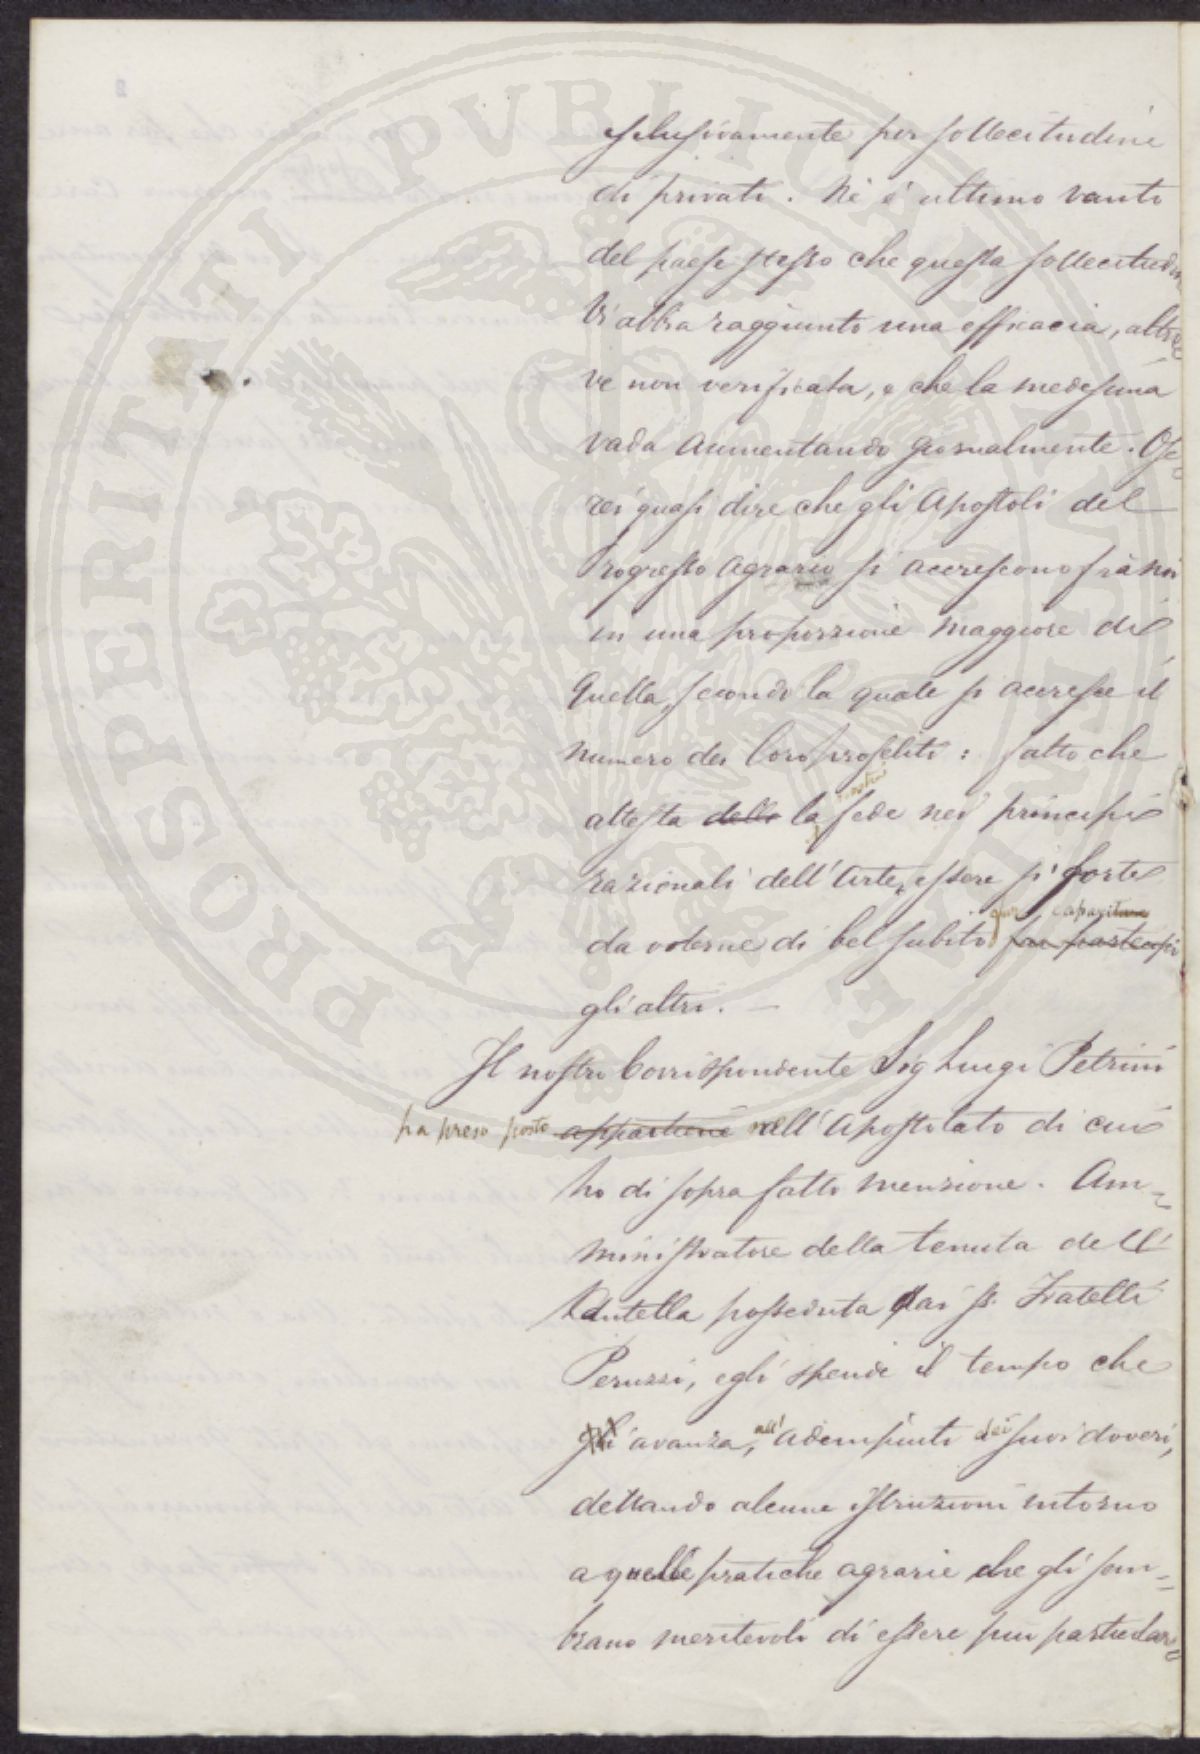 sclusivamente per sollecitudine
di privati. Nè è ultimo vanto
del paese stesso che questa sollecitudin
Vi abbia raggiunto una efficacia, altro=
ve non verificata, e che la medesima
vada aumentando giornalmente. Ose=
rei quasi dire che gli Apostoli del
Progresso Agrario si accrescono frà noi
in una proporzione maggiore di
quella, secondo la quale si accresce il
numero dei loro proseliti: fatto che
attesta delle la fede nei principii
razionali dell'Arte, essere sì forte
capacitare
da volerne di bel subito far partecipi
gli altri. —
Il nostro Corrispondente Sig Luigi Petrini
ha preso posto appartiene nell'Apostolato di cui
ho di sopra fatto menzione. Am=
ministratore della tenuta dell'
Antella posseduta dai ss. Fratelli
Peruzzi, egli spende il tempo che
gli avanza, all' adempiuti dei suoi doveri,
dettando alcune istruzioni intorno
a quelle pratiche agrarie che gli sem=
brano meritevoli di essere più particolar=
PROSPERITATI PUBLICAE